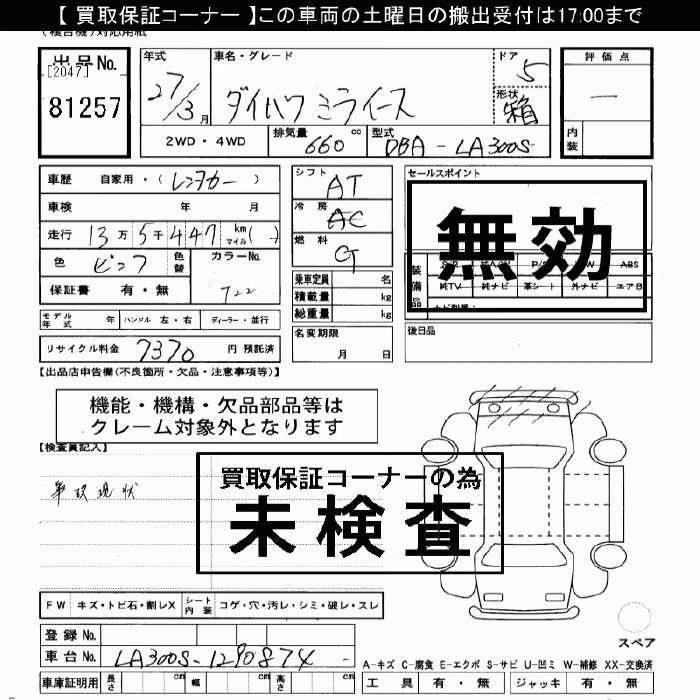 【 買取保証コーナー 】この車両の土曜日の搬出受付は17:00まで
出品No.
[2047]
81257
年式
27/3月
車名・グレード
ダイハツ ミライース
ドア
5
形状
箱
評価点
—
内装
2WD・4WD
排気量 660 cc
型式 DBA - LA300S
車歴 自家用・(レンタカー)
車検 年 月
走行 13万5千447 km マイル( )
色 ピンク 色替
カラーNo. T22
保証書 有・無
モデル年式 年 ハンドル 左・右 ディーラー・並行
リサイクル料金 7370 円 預託済
シフト AT
冷房 AC
燃料 G
乗車定員 名
積載量 kg
総重量 kg
名変期限
月 日
セールスポイント
無効
装備品
ABS
純TV 純ナビ 革シート 外ナビ エアB
後日品
【出品店申告欄(不良箇所・欠品・注意事項等)】
機能・機構・欠品部品等は
クレーム対象外となります
【検査員記入】
事故現状
買取保証コーナーの為
未検査
FW キズ・トビ石・割レX シート内装 コゲ・穴・汚レ・シミ・破レ・スレ
登録No.
車台No. LA300S-1290874
車庫証明用 長さ cm 幅 cm 高さ cm
スペア
A-キズ C-腐食 E-エクボ S-サビ U-凹ミ W-補修 XX-交換済
工具 有・無 ジャッキ 有・無